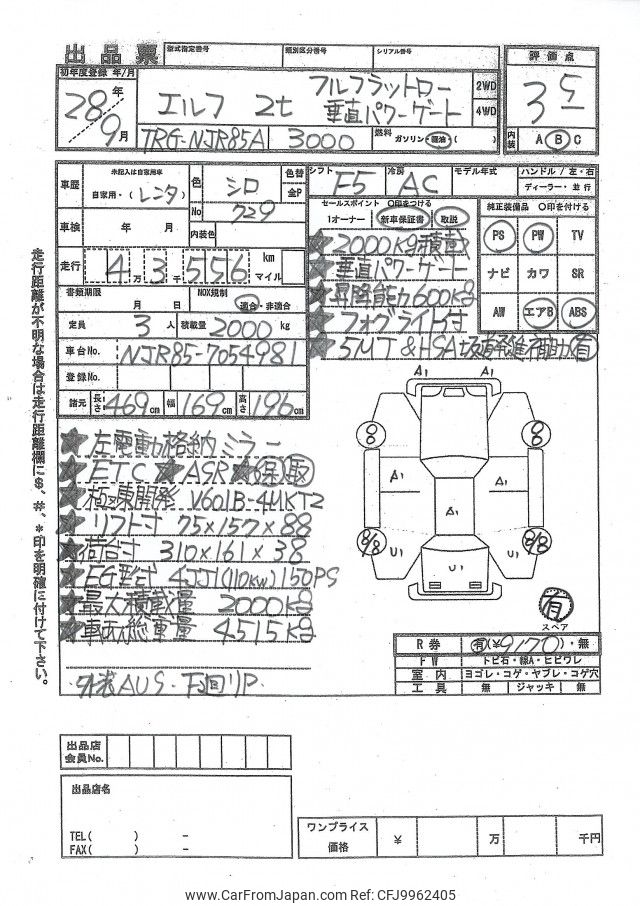 出品票
型式指定番号
類別区分番号
シリアル番号
評価点
初年度登録 年/月
28年
9月
エルフ 2t
フルフラットロー
垂直パワーゲート
2WD
4WD
3.5
TRG-NJR85A
3000
燃料
ガソリン・軽油・( )
内装
A B C
車歴
未記入は自家用車
自家用・(レンタ)
色
シロ
色替
全P
No
729
シフト
F5
冷房
AC
モデル年式
ハンドル / 左・右
ディーラー・並行
車検
年 月
内装色
セールスポイント ○印をつける
1オーナー
新車保証書
取説
純正装備品 ○印を付ける
PS
PW
TV
ナビ
カワ
SR
AW
エアB
ABS
走行
4万3千556
km
マイル
★2000kg積載
★垂直パワーゲート
★昇降能力600kg
★フォグライト付
★5MT&HSA坂道発進補助有
書類期限
月 日
NOX規制
適合・非適合
定員
3人
積載量
2000kg
車台No.
NJR85-7054981
登録No.
諸元
長さ
469cm
幅
169cm
高さ
196cm
走行距離が不明な場合は走行距離欄に$、#、*印を明確に付けて下さい。
★左電動格納ミラー
★ETC ★ASR ★保取
★極東開発 V601B-4UKT2
★リフト寸 75×157×88
★荷台寸 310×161×38
★EG型式 4JJ1(110KW)150PS
★最大積載量 2000kg
★車両総重量 4515kg
外装AUS・下廻りP
A1
A1
8/8
8/8
A1
A1
A1
8/8
8/8
U1
U1
U1
有
スペア
R券
有(¥9170)・無
FW
トビ石・線A・ヒビワレ
室内
ヨゴレ・コゲ・ヤブレ・コゲ穴
工具
無
ジャッキ
無
出品店
会員No.
出品店名
TEL( ) -
FAX( ) -
ワンプライス
価格
¥
万
千円
www.CarFromJapan.com Ref: CFJ9962405